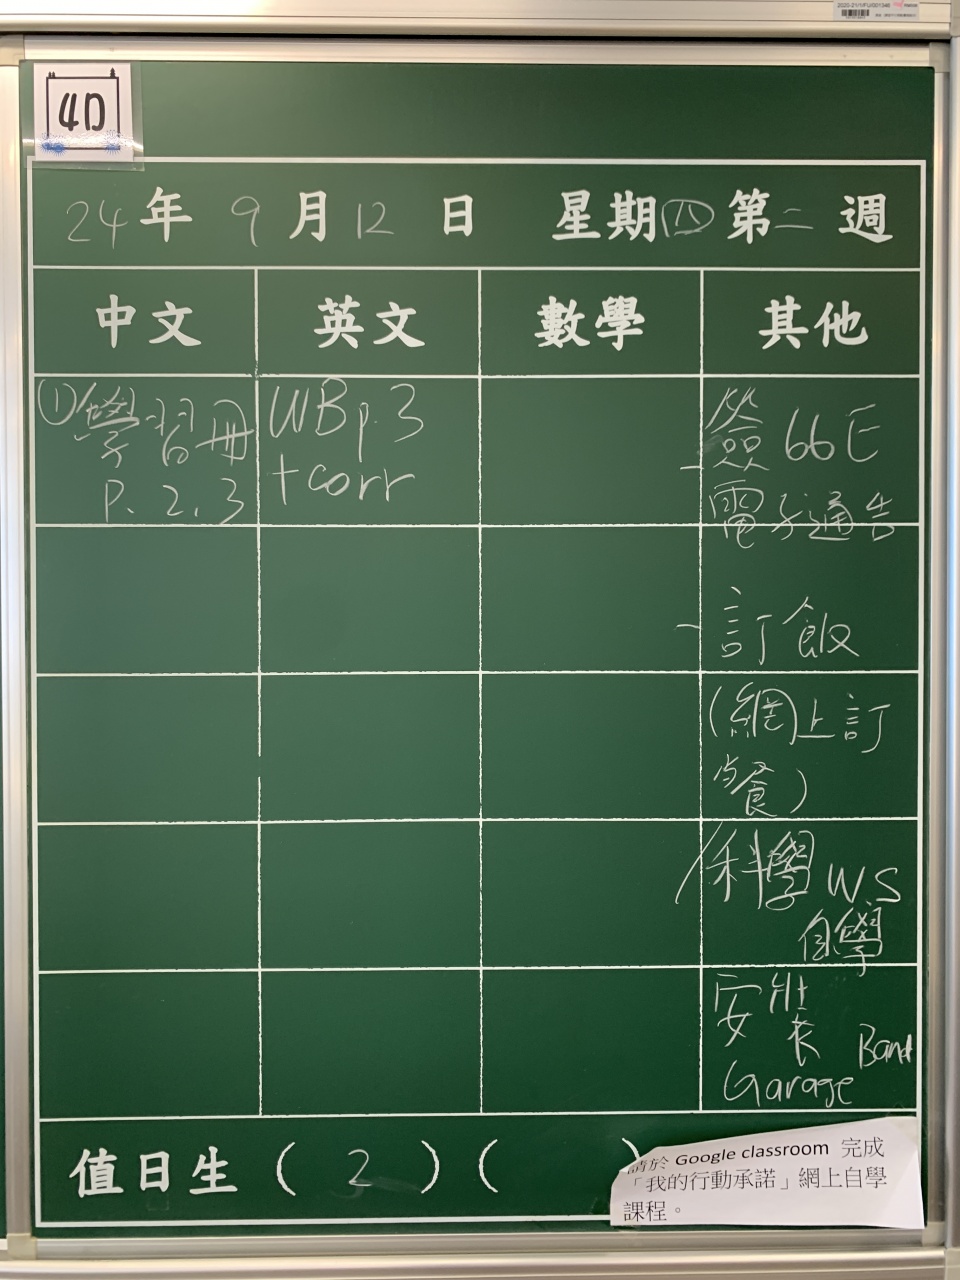 4D
24年 9月 12日 星期四 第二週
中文 英文 數學 其他
①學習冊
P. 2. 3
WB p. 3
+corr
-簽 66E
電子通告
-訂飯
(網上訂
餐)
科學 W.S
自學
安裝
Garage Band
值日生 ( 2 ) ( )
請於 Google classroom 完成
「我的行動承諾」網上自學
課程。